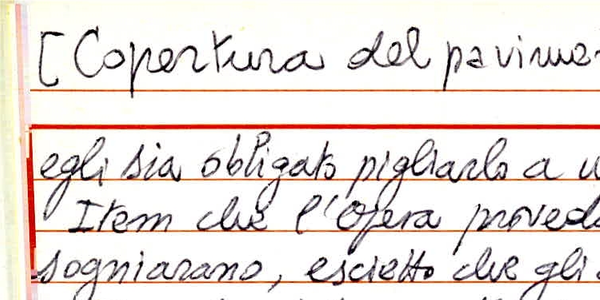 [Copertura del pavime
egli sia obbligato pigliarlo a
Item che l'Opera proved
sogniarano, escietto che gli